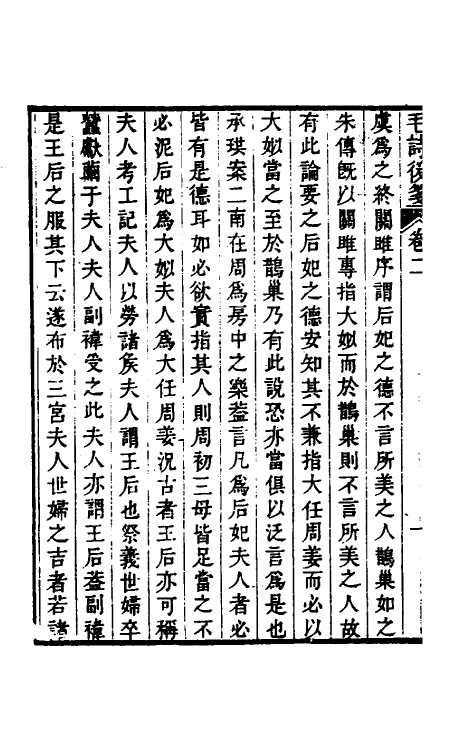 毛詩後箋 卷二 一
虞為之終關雎序謂后妃之德不言所美之人鵲巢如之
朱傳既以關雎專指大姒而於鵲巢則不言所美之人故
有此論要之后妃之德安知其不兼指大任周姜而必以
大姒當之至於鵲巢乃有此說恐亦當俱以泛言為是也
承珙案二南在周為房中之樂葢言凡為后妃夫人者必
皆有是德耳如必欲實指其人則周初三母皆足當之不
必泥后妃為大姒夫人為大任周姜況古者王后亦可稱
夫人考工記夫人以勞諸矦夫人謂王后也祭義世婦卒
蠶獻繭于夫人夫人副褘受之此夫人亦謂王后葢副褘
是王后之服其下云遂布於三宮夫人世婦之吉者若諸